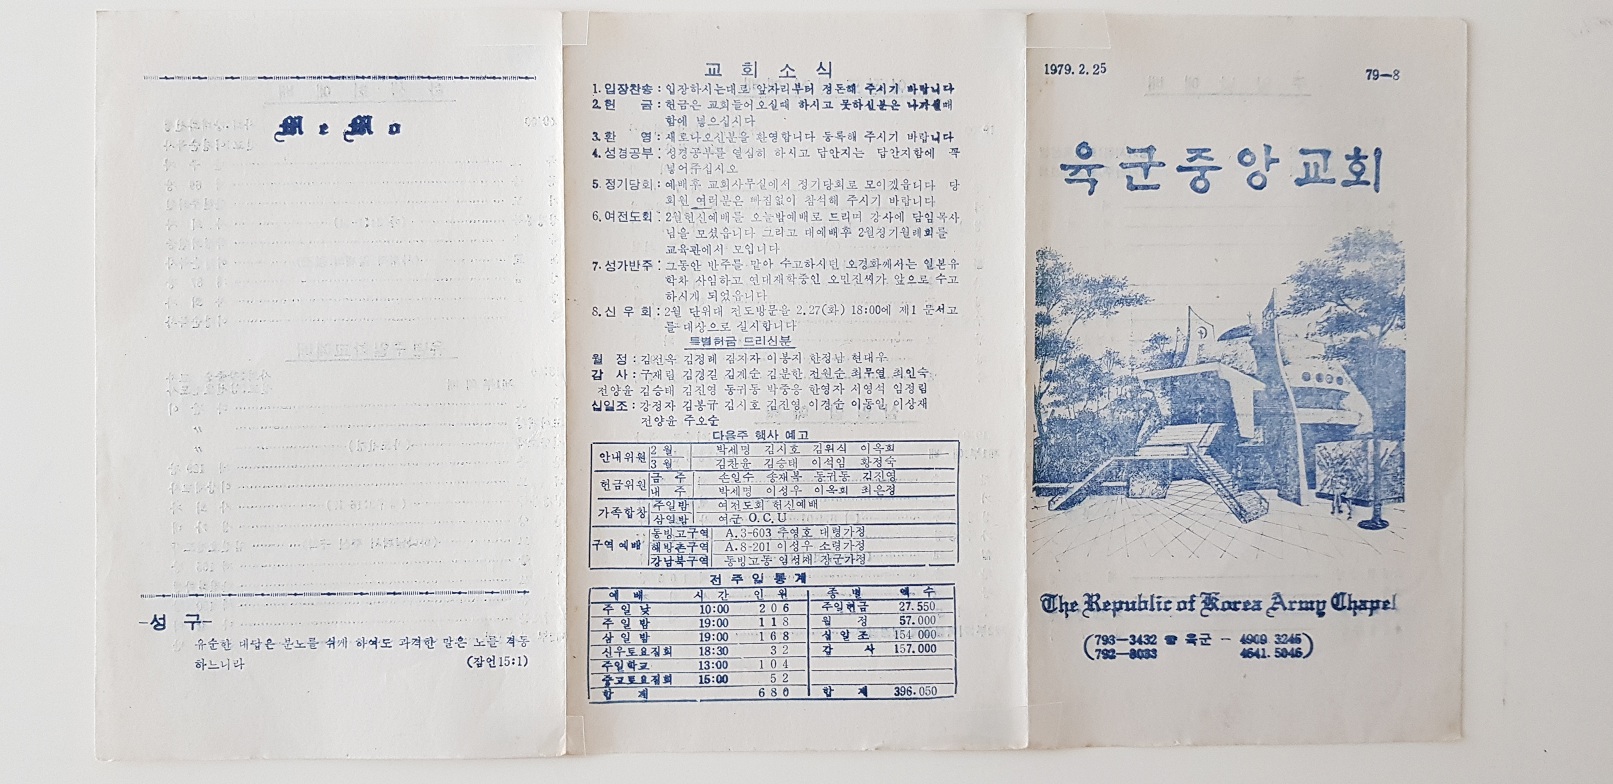 MeMo
-성 구-
유순한 대답은 분노를 쉬게 하여도 과격한 말은 노를 격동
하느니라 (잠언15:1)
교 회 소 식
1. 입장찬송 : 입장하시는대로 앞자리부터 정돈해 주시기 바랍니다
2. 헌 금 : 헌금은 교회들어오실때 하시고 못하신분은 나가실때
함에 넣으십시다
3. 환 영 : 새로나오신분을 환영합니다 등록해 주시기 바랍니다
4. 성경공부 : 성경공부를 열심히 하시고 답안지는 답안지함에 꼭
넣어주십시오
5. 정기당회 : 예배후 교회사무실에서 정기당회로 모이겠읍니다 당
회원 여러분은 빠짐없이 참석해 주시기 바랍니다
6. 여전도회 : 2월헌신예배를 오늘밤예배로 드리며 강사에 담임목사
님을 모셨읍니다 그리고 대예배후 2월정기월례회를
교육관에서 모입니다
7. 성가반주 : 그동안 반주를 맡아 수고하시던 오경화께서는 일본유
학차 사임하고 연대재학중인 오민진씨가 앞으로 수고
하시게 되었읍니다
8. 신 우 회 : 2월 단위대 전도방문을 2.27(화) 18:00에 제1 문서고
를 대상으로 실시합니다
특별헌금 드리신분
월 정 : 김선옥 김정례 김치자 이봉지 한정남 현대우
감 사 : 구재림 김경진 김계순 김분한 전원순 최무열 최인숙
전양윤 김승태 김진영 동귀동 박중응 한영자 서영석 임정립
십일조 : 강정자 김봉규 김시호 김진영 이경순 이동일 이상재
전양윤 주오순
다음주 행사 예고
안내위원 2 월 박세명 김시호 김위식 이옥희
3 월 김찬윤 김승태 이석임 황정숙
헌금위원 금 주 손일수 송재복 동귀동 김진영
내 주 박세명 이성우 이옥희 최은정
가족합창 주일밤 여전도회 헌신예배
삼일밤 여군 O.C.U
구역 예배 동빙고구역 A.3-603 주영호 대령가정
해방촌구역 A.8-201 이성우 소령가정
강남북구역 동빙고동 임성재 장군가정
전 주 일 통 계
예 배 시 간 인 원 종 별 액 수
주 일 낮 10:00 206 주일헌금 27.550
주 일 밤 19:00 118 월 정 57.000
삼 일 밤 19:00 168 십 일 조 154.000
신우토요집회 18:30 32 감 사 157.000
주일학교 13:00 104
중고토요집회 15:00 52
합 계 680 합 계 396.050
1979. 2. 25 79-8
육군중앙교회
The Republic of Korea Army Chapel
(793-3432 육군 - 4909 3245
792-8033 4641. 5046)